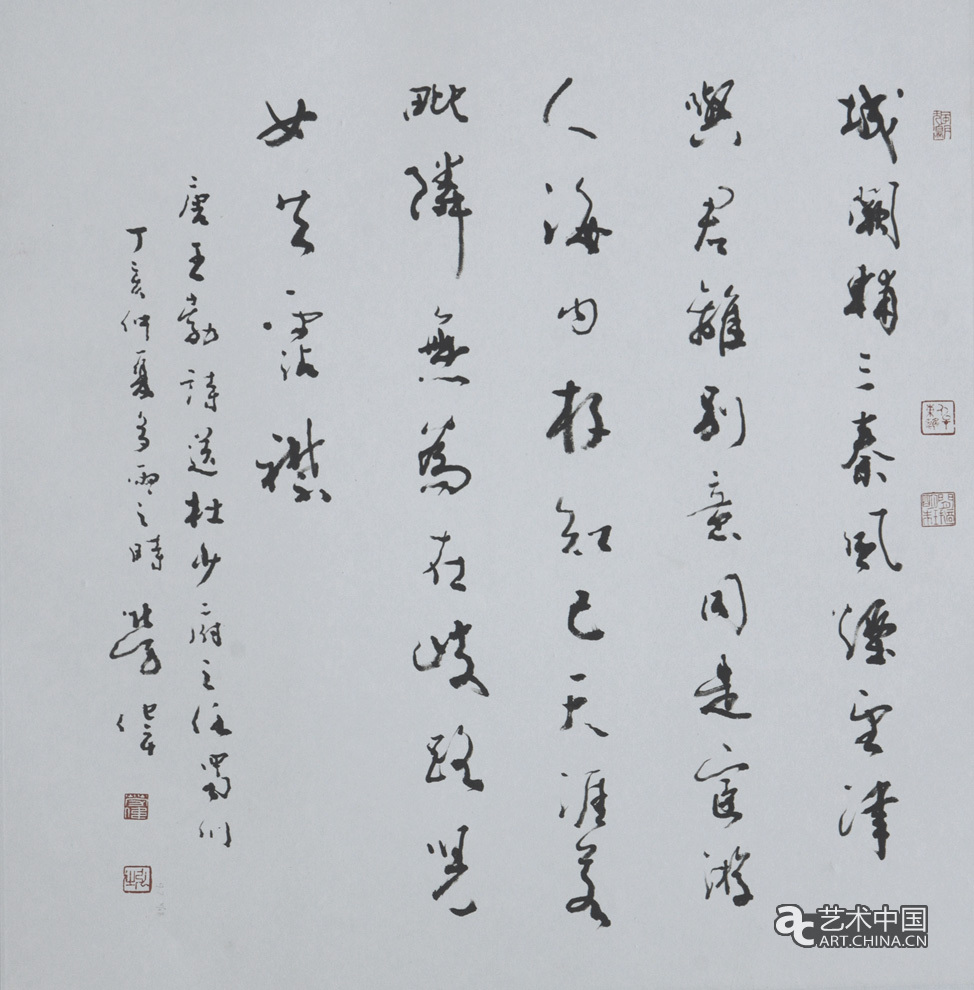 城闕輔三秦風煙望津
與君離別意同是宦游
人海内存知己天涯若
毗隣無為在歧路兒
女共霑襟
唐王勃詩送杜少府之任蜀州
丁亥仲夏多雨之時
艺术中国
ART.CHINA.CN